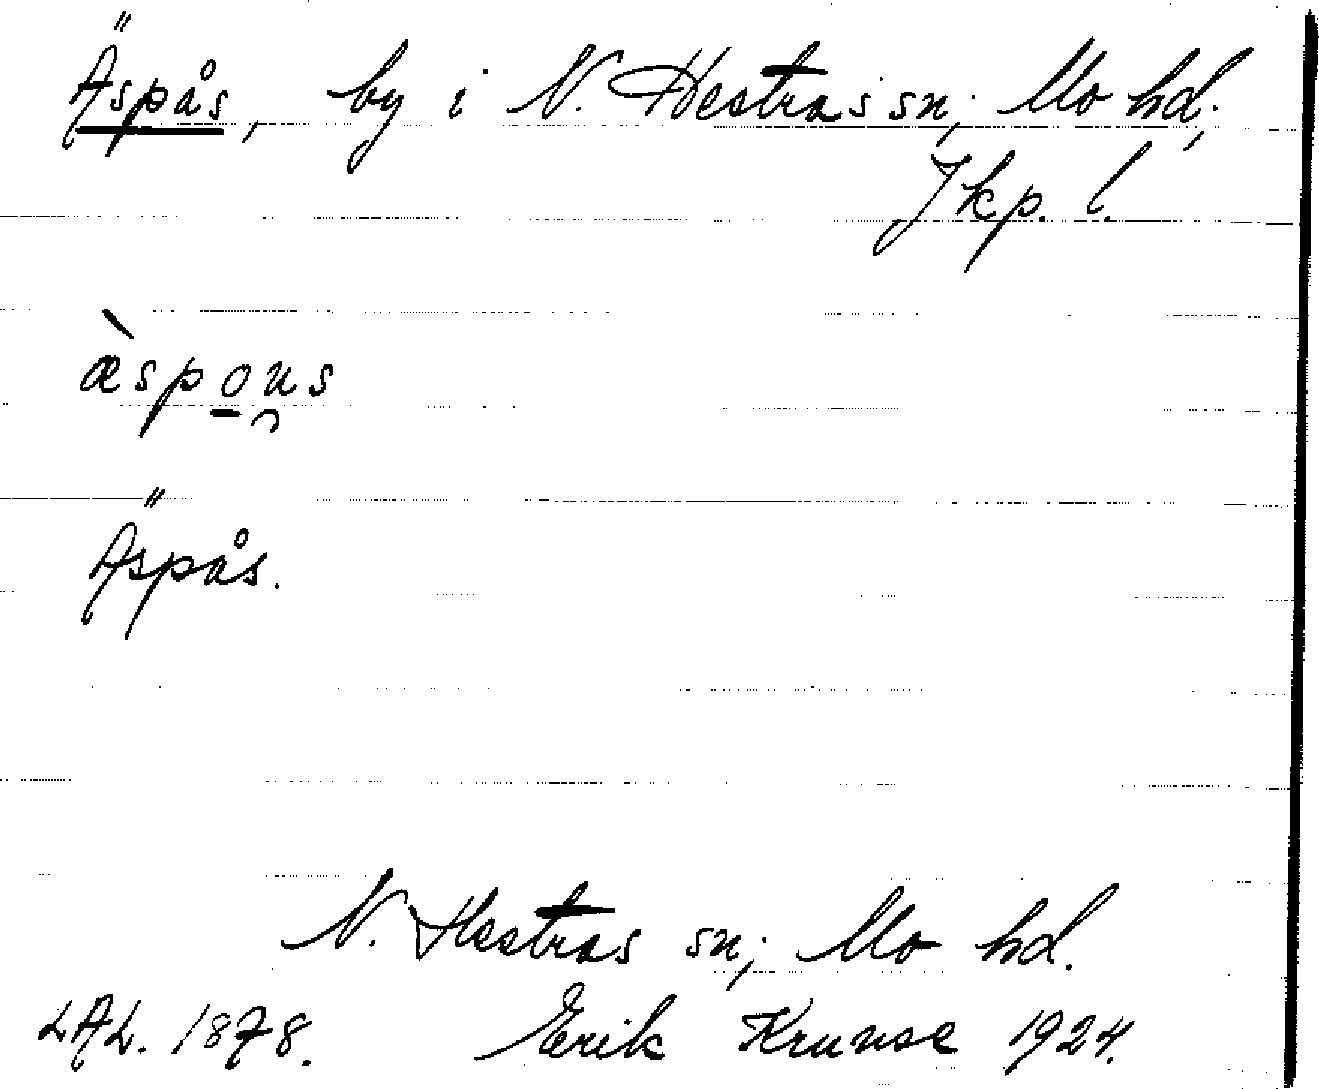 Äspås, by i N. Hestras sn; Mo hd;
Jkp. l.
æ̀spo̲u̯s
Äspås.
N. Hestras sn; Mo hd.
LAL. 1878. Erik Kruuse 1924.